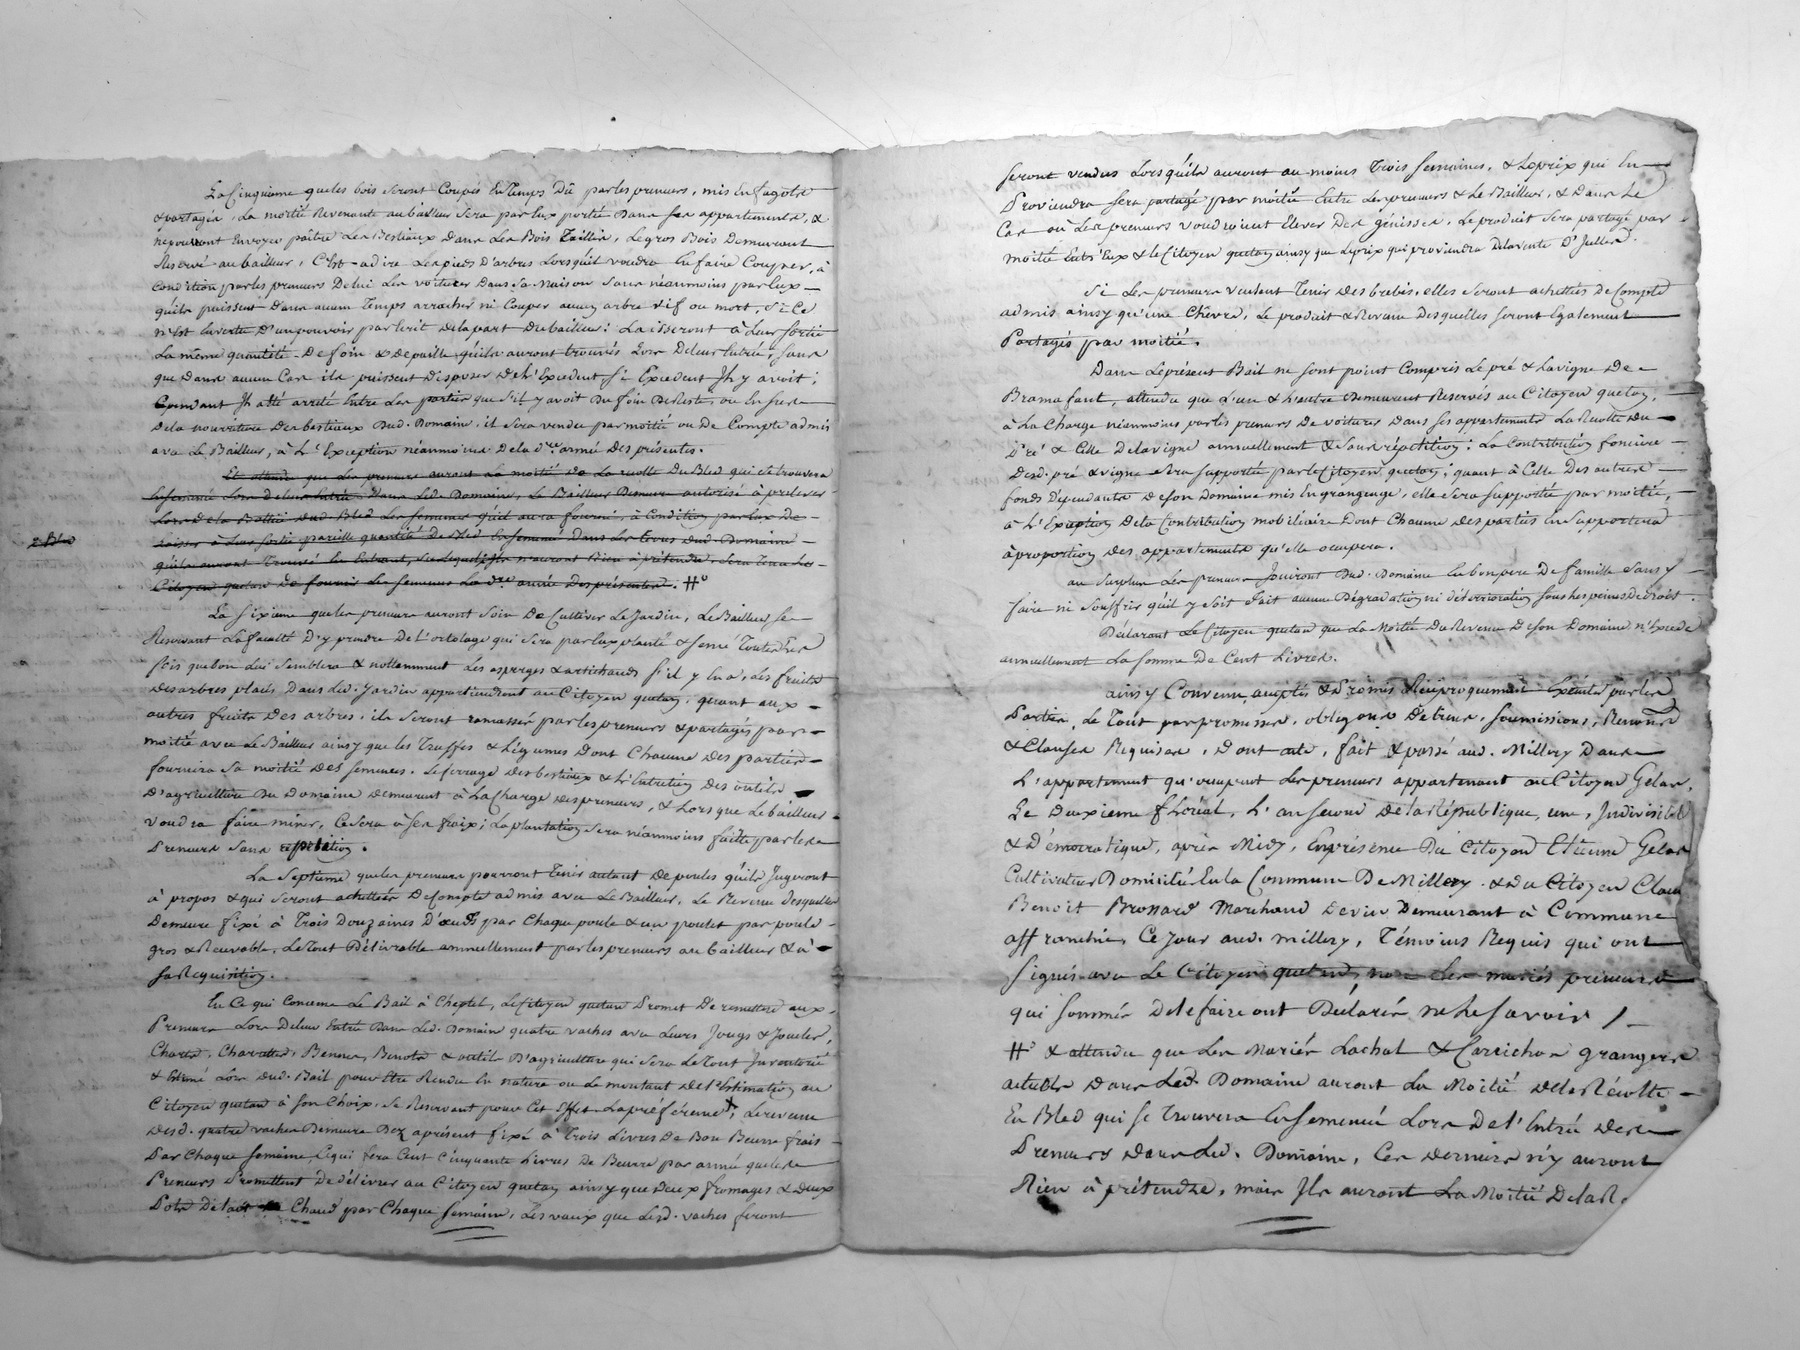 La Cinquieme queles bois seront Coupés En Temps Dû par les preneurs, mis En fagots
& partagés, La moitié Revenante au bailleur sera par Eux portée Dans ses appartements, &
ne pourront Envoyer paître Les Bestiaux Dans Les Bois Taillis, Le gros Bois Demeurant
Reservé au bailleur, C'Est-adire Les pieds D'arbres Lorsqu'il voudra Les faire Couper, à
Condition par les preneurs De lui Les voiturer Dans sa maison sans néanmoins par Eux
qu'ils puissent Dans aucun Temps arracher ni Couper aucun arbre vif ou mort, si Ce
n'Est En vertu D'un pouvoir par Ecrit de la part du bailleur: Laisseront à Leur sortie
La même quantité De foin & de paille qu'ils auront trouvés Lors De leur Entrée, sans
que Dans aucun Cas ils puissent Disposer De L'Excedent si Excedent Jl y avoit;
Cependant Jl a Eté arreté Entre Les parties que s'il y avoit Du foin De Reste, ou En sus
De la nourriture Des bestiaux Dud. Domaine, il sera vendu par moitié ou De Compte admis
avec Le Bailleur, à L'Exception néanmoins De la d.re année Des présentes.
Et attendu que Les preneurs auront La moitié de La recolte Du Bled qui se trouvera
Ensemencé Lors De leur Entrée Dans Led. Domaine, Le Bailleur Demeure autorisé à prelever
Lors De la Recolte Dud. Bled Les semences qu'il aura fourni, à Condition par Eux De
Laisser à Leur sortie pareille quantité De Bled Ensemencé Dans Les terres Dud. Domaine
qu'ils auront Trouvé En Entrant, n'auront Rien à prétendre, sera Tenu Le
Citoyen quetan De fournir Les semences La d.re année Des présentes. #°
La sixieme que les preneurs auront soin De Cultiver Le Jardin, Le Bailleur se
Reservant La faculté D'y prendre De L'ortolage qui sera par Eux planté & semé Toutes Les
fois que bon Lui semblera & nottamment Les asperges & artichauds s'il y En a, Les fruits
Des arbres placés Dans Led. Jardin appartiendront au Citoyen quetan, quant aux
autres fruits Des arbres, ils seront ramassés par les preneurs & partagés par
moitié avec Le Bailleur ainsy que les Truffes & Légumes Dont Chacune Des parties
fournira sa moitié Des semences. Le ferrage Des bestiaux & L'Entretien Des outils
D'agriculture Du Domaine Demeurent à La Charge Des preneurs, & Lors que Le bailleur
voudra faire miner, Ce sera à ses fraix; La plantation sera néanmoins faitte par les
Preneurs sans repetition.
La septieme que les preneurs pourront Tenir autant De poules qu'ils Jugeront
à propos & qui seront achettées De Compte admis avec Le Bailleur. Le Revenu Desquelles
Demeure fixé à Trois Douzaines D'oeufs par Chaque poule & un poulet par poule
gros & Recevable, Le tout Délivrable annuellement par les preneurs au bailleur & à
sa Requisition.
En Ce qui Concerne Le Bail à Cheptel, Le Citoyen quetan Promet De remettre aux
Preneurs Lors De leur Entrée Dans Led. Domaine quatre vaches avec Leurs Jougs & Joucles,
Chards, Charettes, Bennes, Benots & outils D'agriculture qui sera Le Tout Jnventorié
& Estimé Lors Dud. Bail pour Etre Rendu En nature ou Le montant De L'Estimation au
Citoyen quetan à son Choix, se Reservant pour Cet Effet La préférence; Le revenu
Desd. quatre vaches Demeure Dez apresent fixé à Trois Livres De Bon Beurre frais
Par Chaque semaine Ce qui fera Cent Cinquante Livres De Beurre par année que les
Preneurs Promettent De délivrer au Citoyen quetan ainsy que Deux fromages & Deux
Pots De lait Chaud par Chaque semaine, Les veaux que Lesd. vaches feront
seront vendus Lorsqu'ils auront au moins Trois semaines, & Le prix qui En
Proviendra sera partagé par moitié Entre Les preneurs & Le Bailleur, & Dans Le
Cas où Les preneurs voudroient Elever Des génisses, Le produit sera partagé par
moitié Entr'Eux & le Citoyen quetan ainsy que Le prix qui proviendra De la vente D'Jcelles.
Si Les preneurs veulent Tenir Des brebis, elles seront achettées De Compte
admis ainsy qu'une Chèvre, Le produit & Revenu Desquelles seront Egalement
Partagés par moitié.
Dans Le présent Bail ne sont point Compris Le pré & La vigne De
Bramafant, attendu que L'un & L'autre Demeurent Reservés au Citoyen quetan,
à La Charge néanmoins par les preneurs De voiturer Dans ses appartements La Recolte Du
Pré & Celle De la vigne annuellement & sans répétition: La Contribution fonciere
Desd. pré & vigne sera supportée par le Citoyen quetan; quant à Celle Des autres
fonds Dépendants De son Domaine mis En grangeage, elle sera supportée par moitié,
à L'Exception De la Contribution mobiliaire Dont Chacune Des parties En supportera
à proportion Des appartements qu'elle occupera.
au surplus Les preneurs Jouiront Dud. Domaine En bon pere De famille sans y
faire ni souffrir qu'il y soit fait aucune Dégradation ni déterrioration sous Les peines De droit.
Déclarant Le Citoyen quetan que La Moitié Du Revenu De son Domaine n'Excede
annuellement La somme De Cent Livres.
ainsy Convenu, accepté & Promis Réciproquement Exécuter par les
Parties, Le Tout par promesses, obligons De biens, soumissions, Renons
& Clauses Requises, Dont acte, fait & passé aud. Millery Dans
L'appartement qu'occupent Les preneurs appartenant au Citoyen Gelas,
Le Deuxieme fLoréal, L'an second De la République, une, Jndivisible
& Démocratique, après Midy, En présence Du Citoyen Etienne Gelas
Cultivateur Domicilié En la Commune De Millery & Du Citoyen Claude
Benoit Brossard Marchand De vin Demeurant à Commune
affranchie, Ce jour aud. millery, Témoins Requis qui ont
signés avec Le Citoyen quetan, non Les mariés preneurs
qui sommés De le faire ont Declarés ne Le savoir /.
#° & attendu que Les Mariés Lachal & Carrichon grangers
actuels Dans Led. Domaine auront La Moitié De la Récolte
En Bled qui se Trouvera Ensemencé Lors De L'Entrée Des
Preneurs Dans Led. Domaine, Ces Derniers n'y auront
Rien à prétendre, mais Jls auront La Moitié De la R.